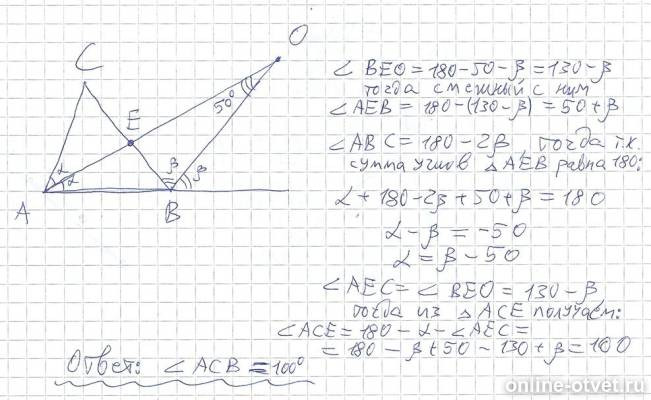 C
O
E
50°
α
α
β
β
A
B
∠ BEO = 180-50-β = 130-β
тогда смежный с ним
∠ AEB = 180-(130-β) = 50+β
∠ABC = 180-2β, тогда т.к.
сумма углов △AEB равна 180:
α+180-2β+50+β = 180
α-β = -50
α = β-50
∠AEC = ∠BEO = 130-β
тогда из △ACE получаем:
∠ACE = 180-α-∠AEC =
= 180-β+50-130+β = 100
Ответ: ∠ACB = 100°
online-otvet.ru